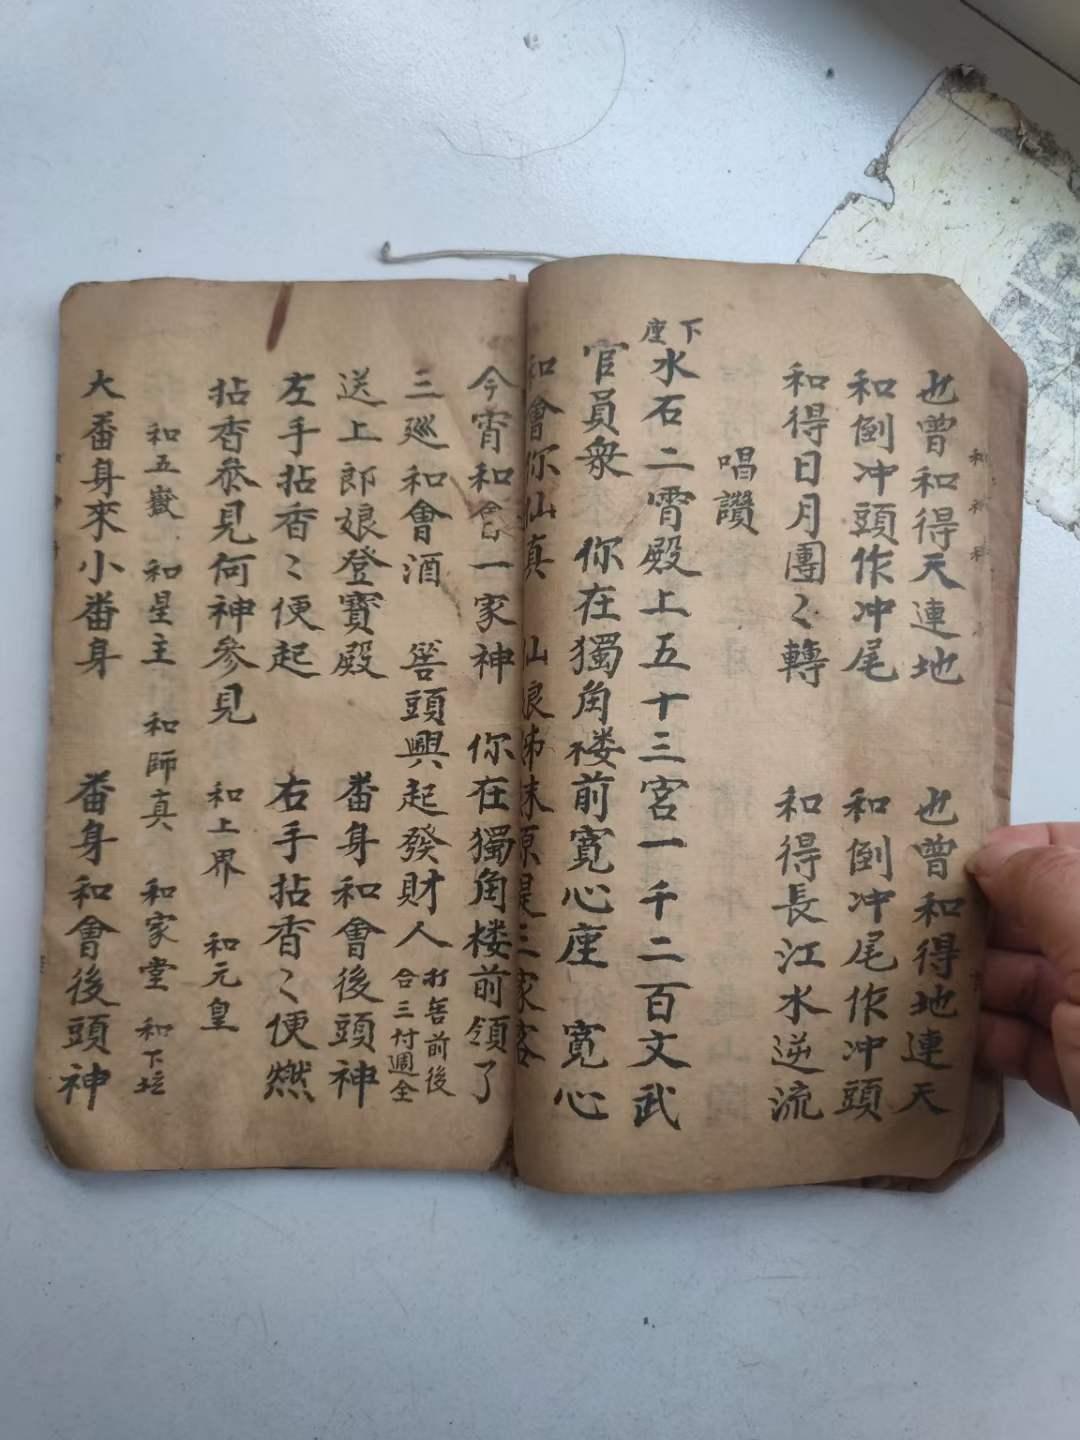 也曾和得天連地　也曾和得地連天
和倒冲頭作冲尾　和倒冲尾作冲頭
和得日月團〻轉　和得長江水逆流
唱讚
下座
水石二霄殿上五十三宮一千二百文武
官員衆　你在獨角楼前寛心座　寛心
和會你仙真　仙娘姊妹原是三家客
今宵和會一家神　你在獨角楼前領了
三巡和會酒　筶頭興起發財人　打筶前後
合三付週全
送上郎娘登寶殿　畨身和會後頭神
左手拈香〻便起　右手拈香〻便燃
拈香叅見何神參見　和上界　和元皇
和五嶽　和星主　和師真　和家堂　和下坛
大畨身來小畨身　畨身和會後頭神